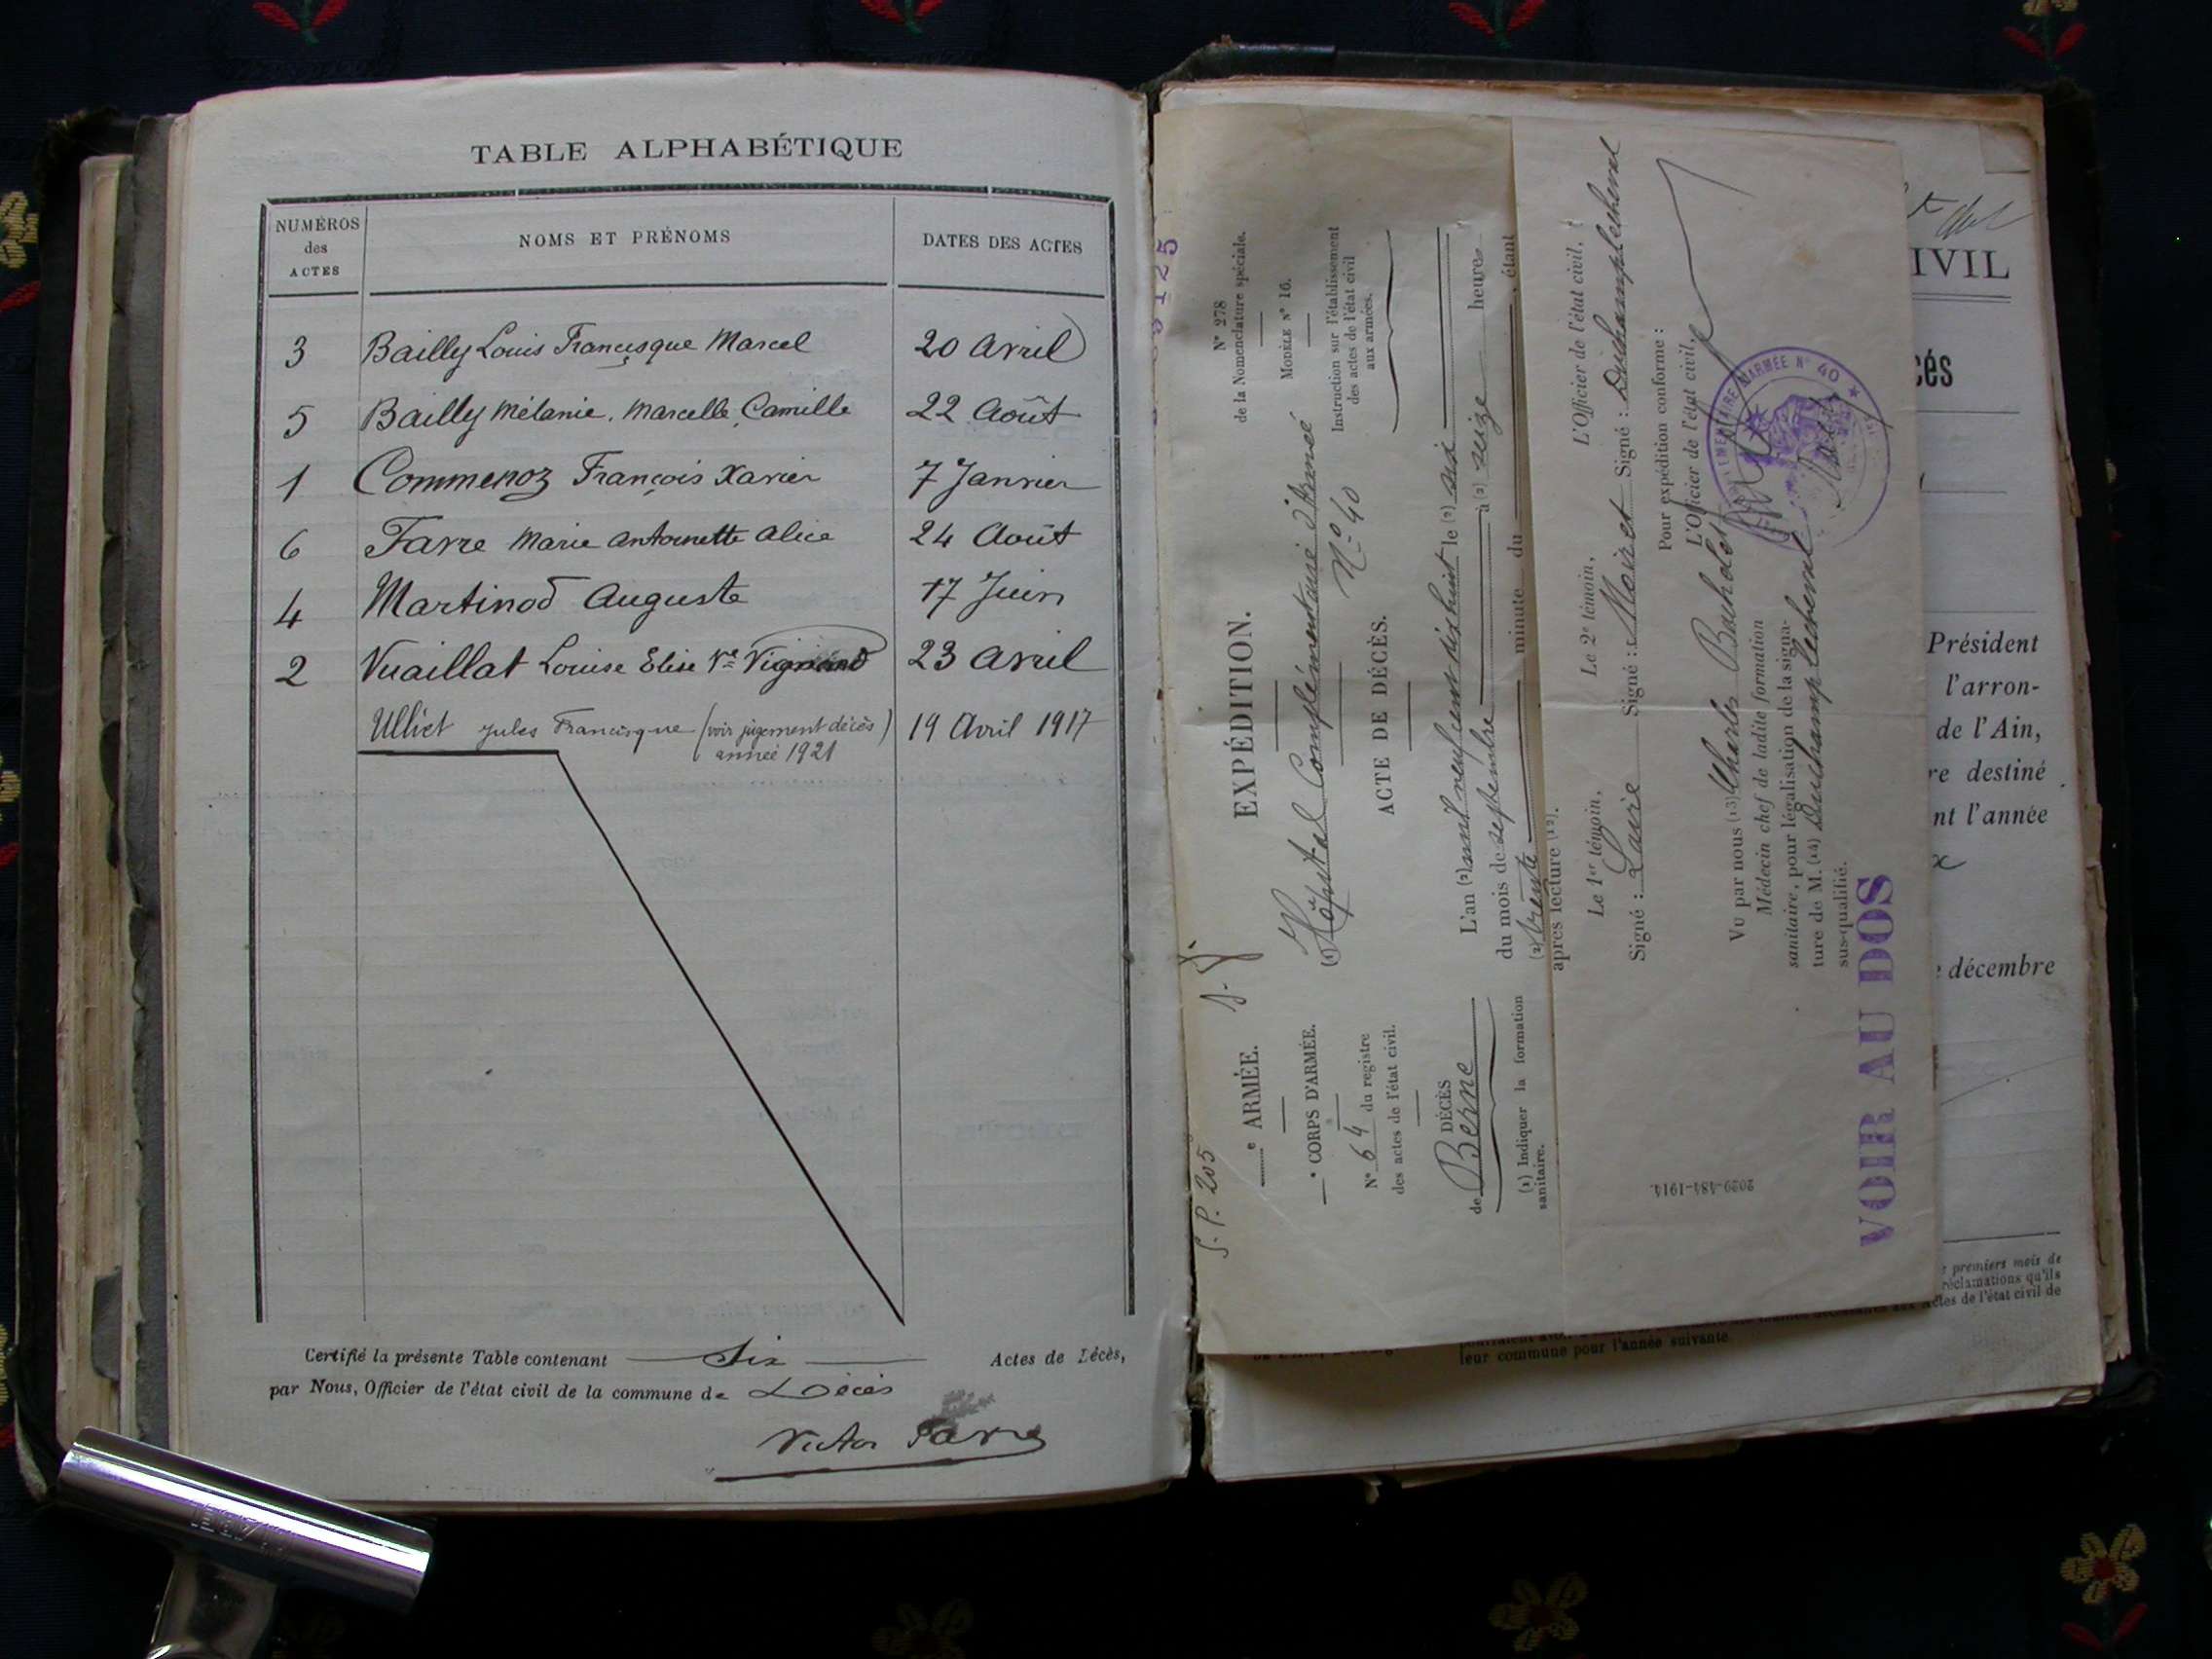 TABLE ALPHABÉTIQUE
NUMÉROS des ACTES
NOMS ET PRÉNOMS
DATES DES ACTES
3 Bailly Louis Francisque Marcel 20 Avril
5 Bailly Mélanie, Marcelle, Camille 22 Août
1 Commenoz François Xavier 7 Janvier
6 Favre Marie Antoinette Alice 24 Août
4 Martinod Auguste 17 Juin
2 Vuaillat Louise Elise Vve Vignand 23 Avril
Ulliet Jules Francisque (voir jugement décès 19 Avril 1917
année 1921)
Certifié la présente Table contenant six Actes de Décès,
par Nous, Officier de l'état civil de la commune de Décès
Victor Favre
S. P. 205
e ARMÉE.
e CORPS D'ARMÉE.
N° 64 du registre
des actes de l'état civil.
DÉCÈS
de Berne
(1) Indiquer la formation
sanitaire.
EXPÉDITION.
N° 278
de la Nomenclature spéciale.
MODÈLE N° 16.
Instruction sur l'établissement
des actes de l'état civil
aux armées.
(1) Hôpital Complémentaire d'Armée
N° 40
ACTE DE DÉCÈS.
L'an (2) mil neuf cent dix huit le (2) six
du mois de septembre à (2) seize heures
(2) trente minute du , étant
après lecture (12).
Le 1er témoin, Le 2e témoin, L'Officier de l'état civil,
Signé : Laire Signé : Moiret Signé : Duchamplecheval
Pour expédition conforme :
L'Officier de l'état civil,
Vu par nous (13) Charles Bachelet
Médecin chef de ladite formation
sanitaire, pour légalisation de la signa-
ture de M. (14) Duchamplecheval
sus-qualifié.
D'ARMÉE N° 40
2029-484-1914.
VOIR AU DOS
IVIL
cés
Président
l'arron-
de l'Ain,
re destiné
nt l'année
décembre
premiers mois de
réclamations qu'ils
Actes de l'état civil de
leur commune pour l'année suivante.